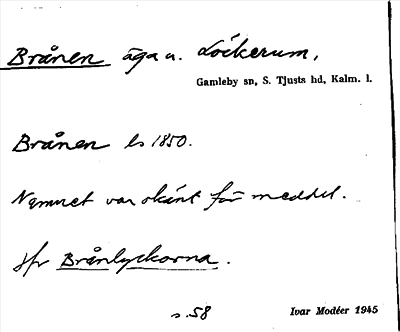 Brånen äga u. Löckerum,
Gamleby sn, S. Tjusts hd, Kalm. l.
Brånen ls 1850.
Namnet var okänt för meddel.
Jfr Brånlyckorna.
s. 58
Ivar Modéer 1945